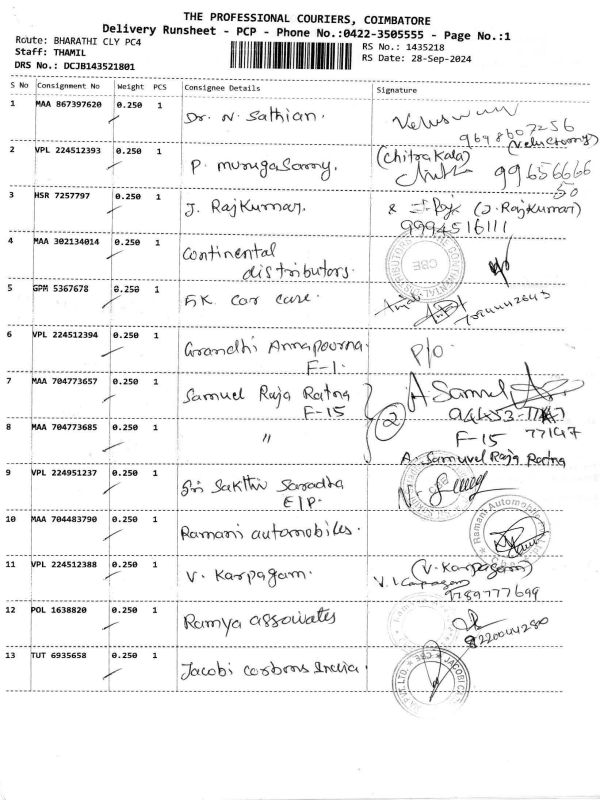 THE PROFESSIONAL COURIERS, COIMBATORE
Delivery Runsheet - PCP - Phone No.:0422-3505555 - Page No.:1
Route: BHARATHI CLY PC4
RS No.: 1435218
Staff: THAMIL
RS Date: 28-Sep-2024
DRS No.: DCJB143521801
S No Consignment No Weight PCS Consignee Details Signature
1 MAA 867397620 0.250 1 Dr. N. Sathian.
9698607256
2 VPL 224512393 0.250 1 P. murugasamy. (Chitrakala)
99656666
50
3 HSR 7257797 0.250 1 J. Rajkumar. (J. Rajkumar)
9994516111
4 MAA 302134014 0.250 1 Continental
distributors.
CBE
5 GPM 5367678 0.250 1 car care.
6 VPL 224512394 0.250 1 Grandhi Annapourna.
F-1. P/O
7 MAA 704773657 0.250 1 Samuel Raja Ratna A Samuel
F-15 2
8 MAA 704773685 0.250 1 "
F-15 77147
A. Samuvel Raja Ratna
9 VPL 224951237 0.250 1 Sri Sakthi Saradha
E/P.
10 MAA 704483790 0.250 1 Ramani automobiles.
Ramani Automobile
11 VPL 224512388 0.250 1 V. Karpagam. (V. Karpagam)
9789777699
12 POL 1638820 0.250 1 Ramya associates
13 TUT 6935658 0.250 1 Jacobi carbons India.
PVT.LTD. CBE JACOBI